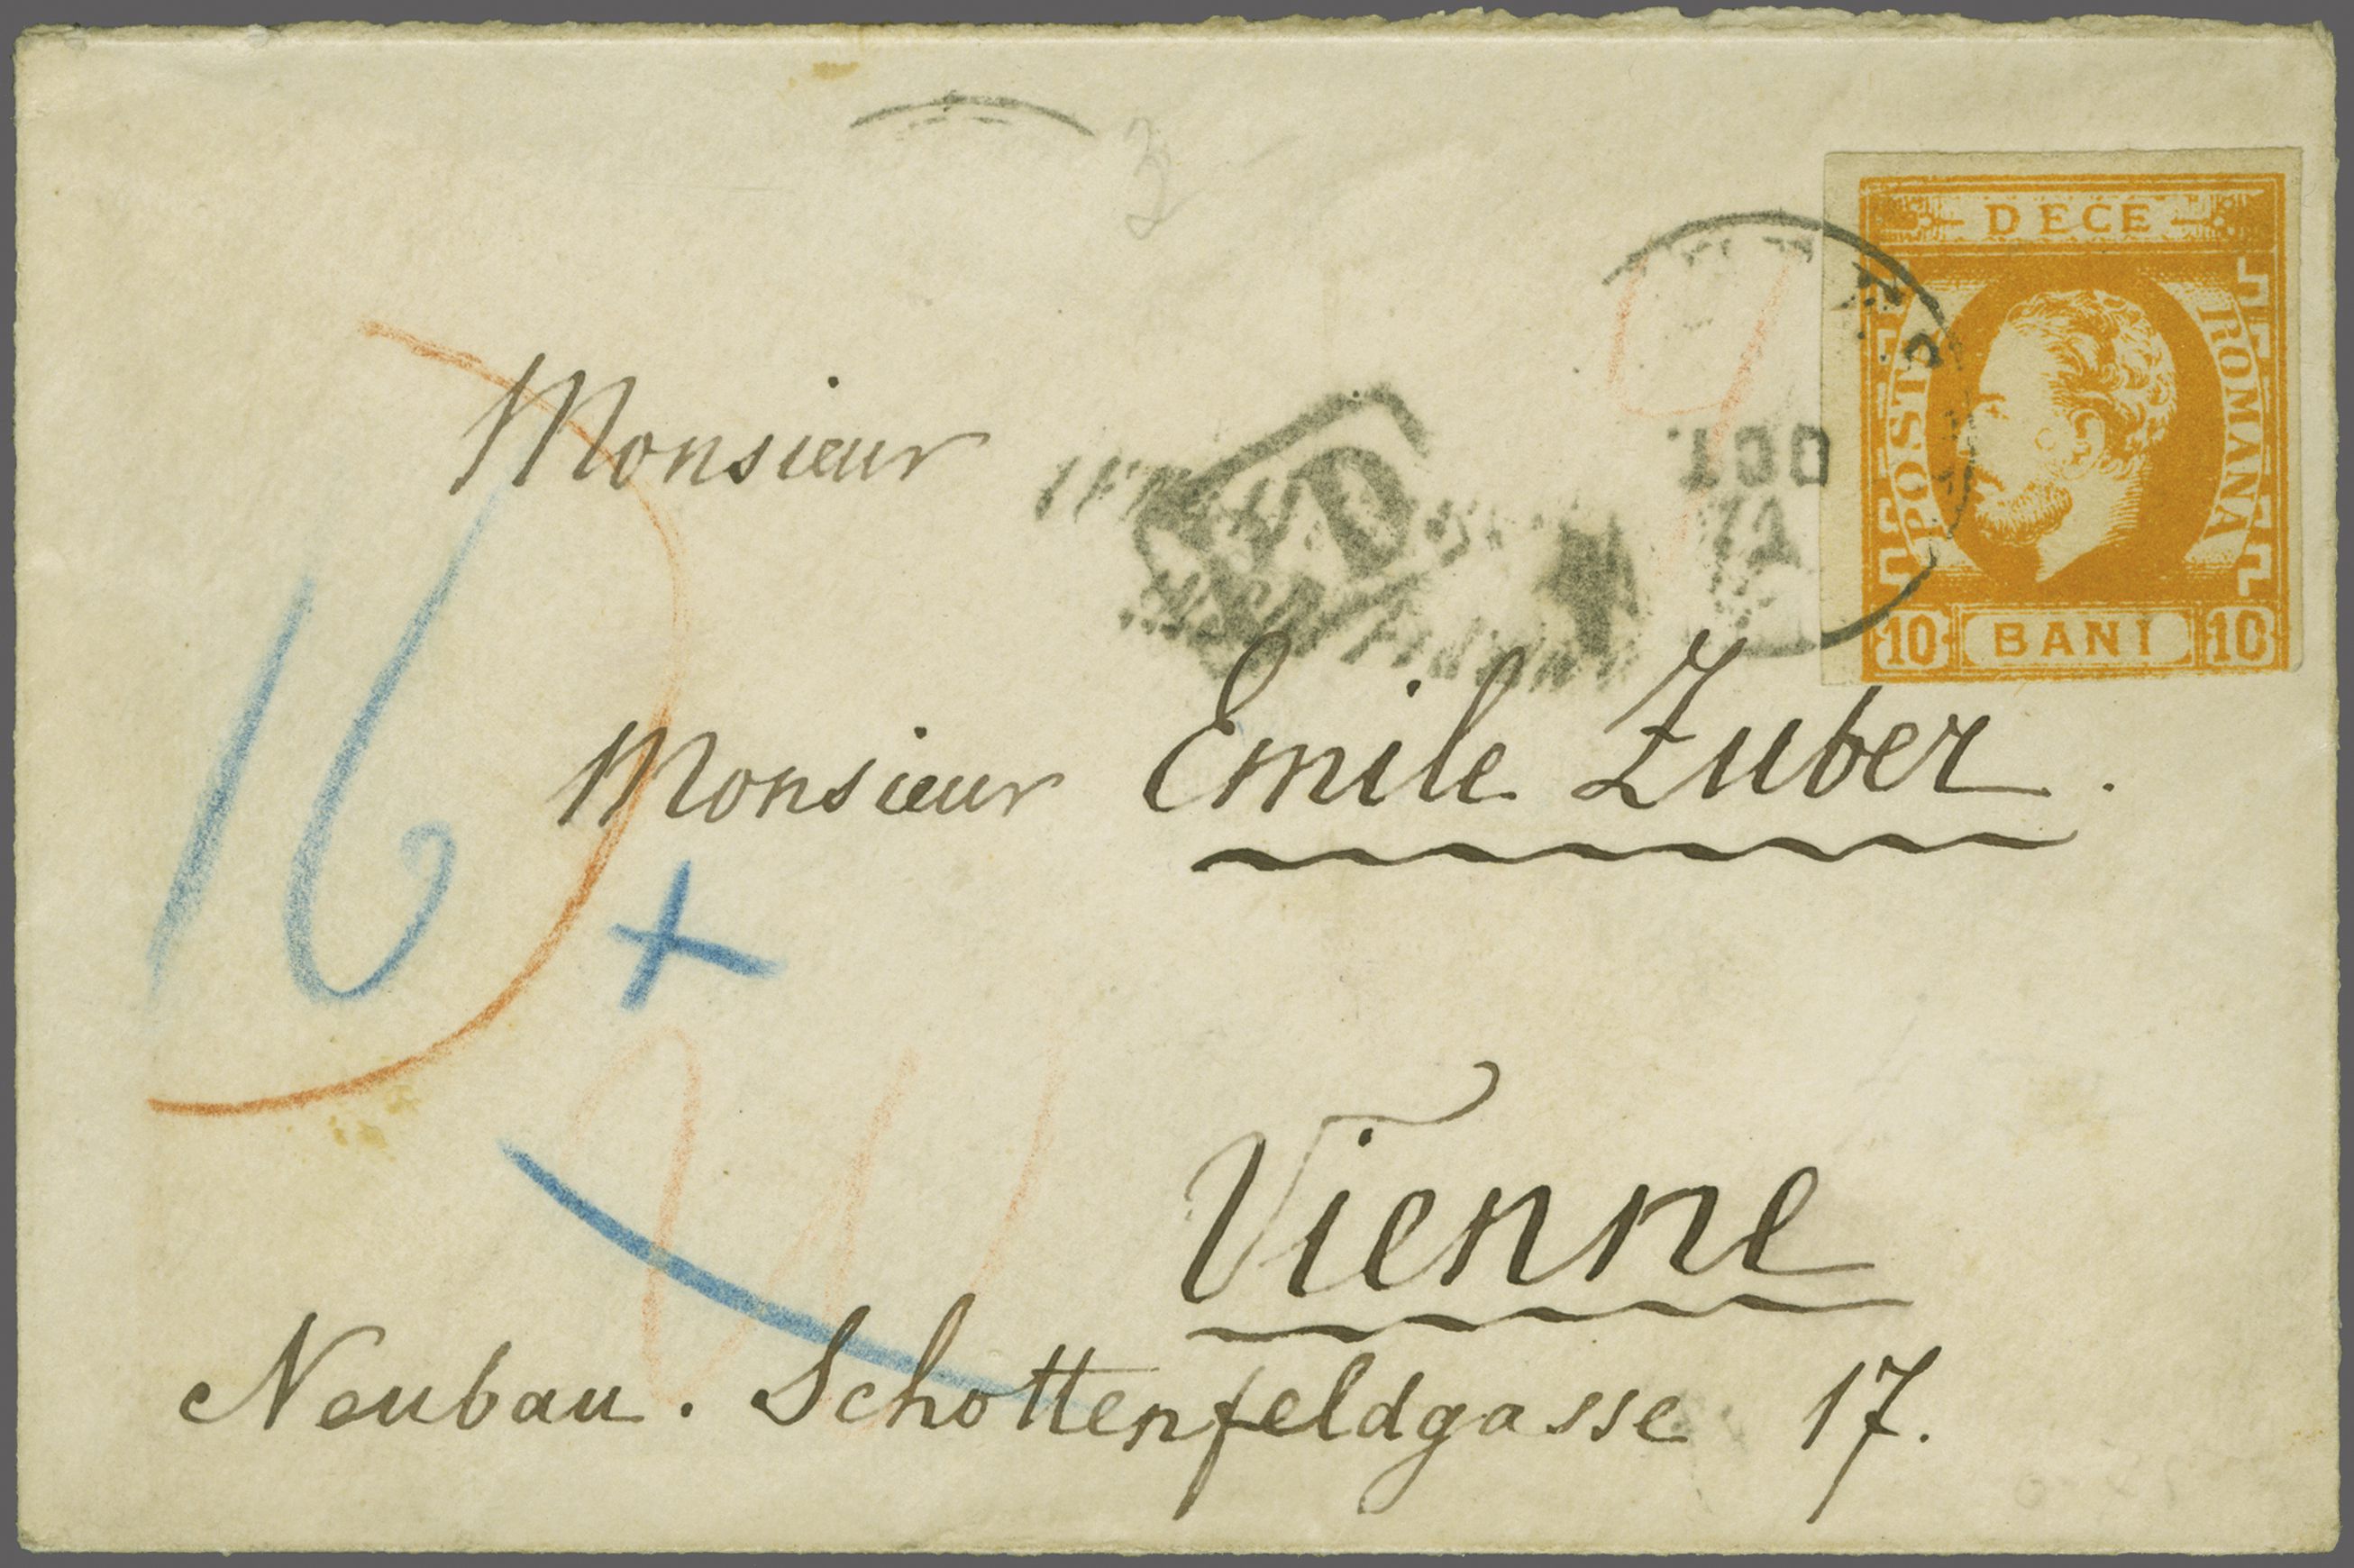 3
DECE
POSTA
ROMANA
10 BANI 10
OCT.
PD
Monsieur
Monsieur Emile Zuber.
16
+
Vienne
Neubau. Schottenfeldgasse 17.